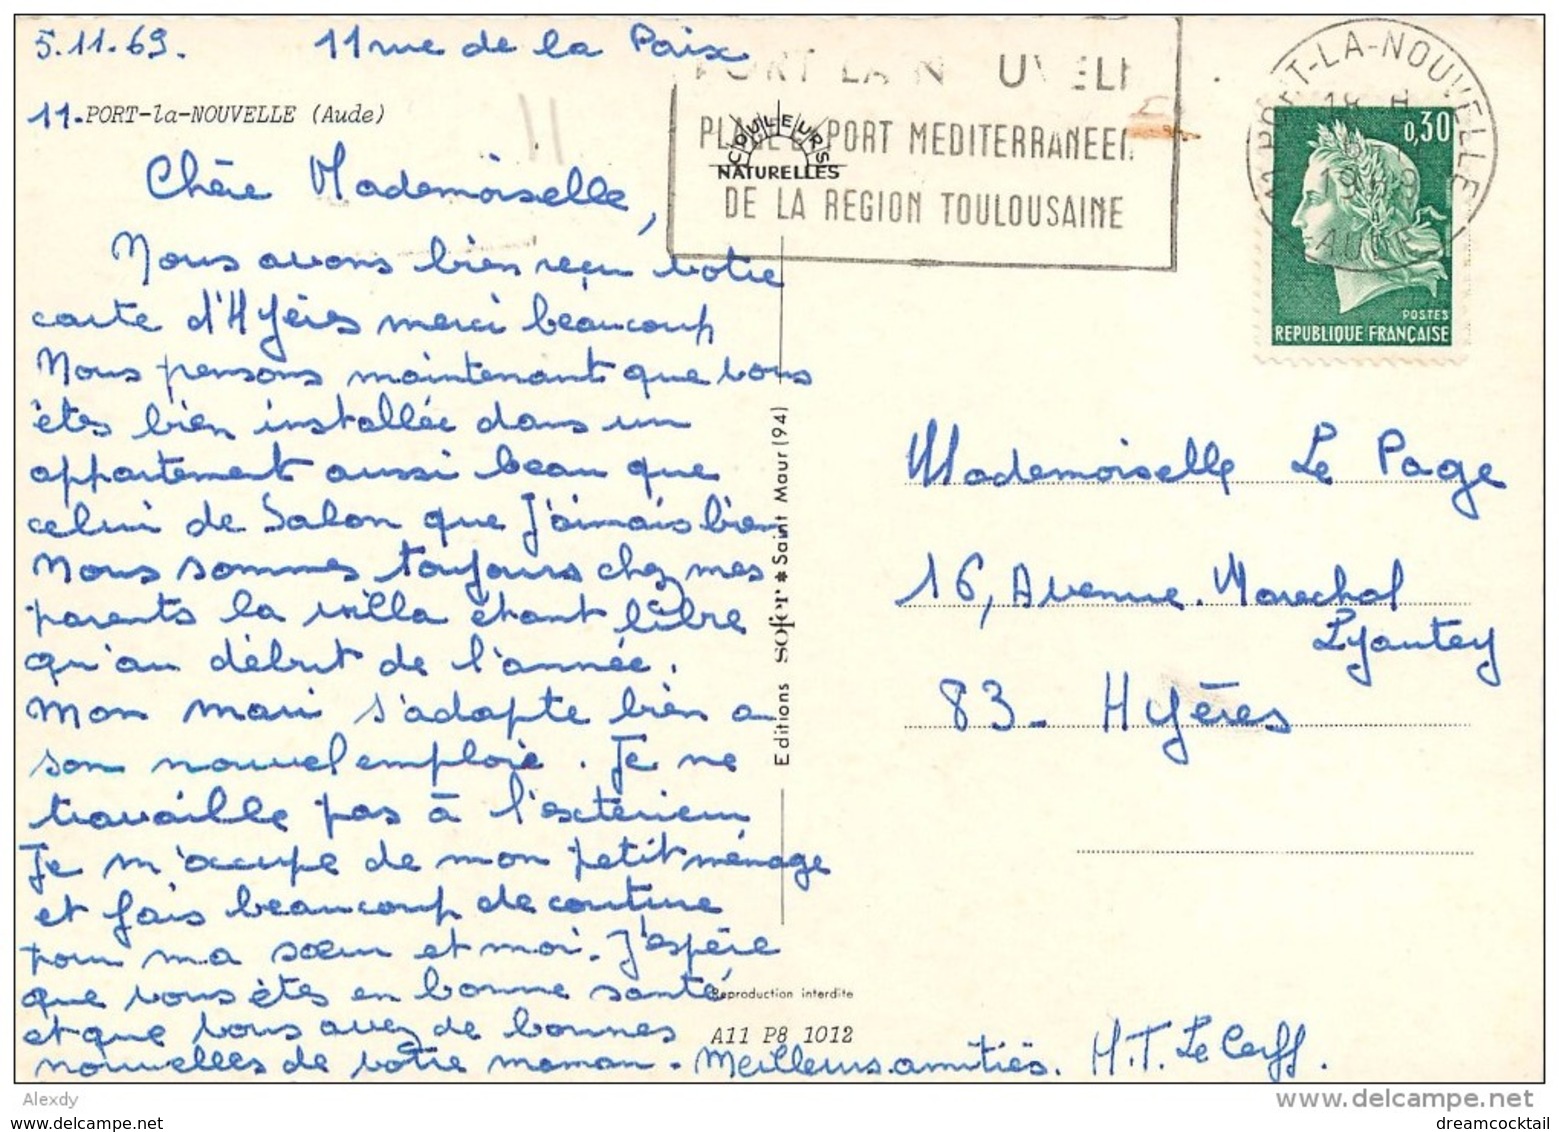 5.11.69. 11 rue de la Paix
11. PORT-la-NOUVELLE (Aude)
Chère Mademoiselle,
Nous avons bien reçu votre
carte d'Hyères merci beaucoup
Nous pensons maintenant que vous
êtes bien installée dans un
appartement aussi beau que
celui de Salon que j'aimais bien
Nous sommes toujours chez mes
parents la villa étant libre
qu'au début de l'année.
Mon mari s'adapte bien a
son nouvel emploie. Je ne
travaille pas à l'exterieur
Je m'occupe de mon petit ménage
et fais beaucoup de couture
pour ma sœur et moi. J'espère
que vous êtes en bonne santé
et que vous avez de bonnes
nouvelles de votre maman. Meilleurs amitiés. H.T. Le Cerff.
COULEURS
NATURELLES
Editions SOFER * Saint Maur (94)
Reproduction interdite
A11 P8 1012
PORT LA N UVELL
PLAGE & PORT MEDITERRANEEN
DE LA REGION TOULOUSAINE
11 PORT-LA-NOUVELLE
18 H
AUDE
0,30
POSTES
REPUBLIQUE FRANÇAISE
Mademoiselle Le Page
16, Avenue. Marechal
Lyautey
83 - Hyères
Alexdy
delcampe.net
dreamcocktail